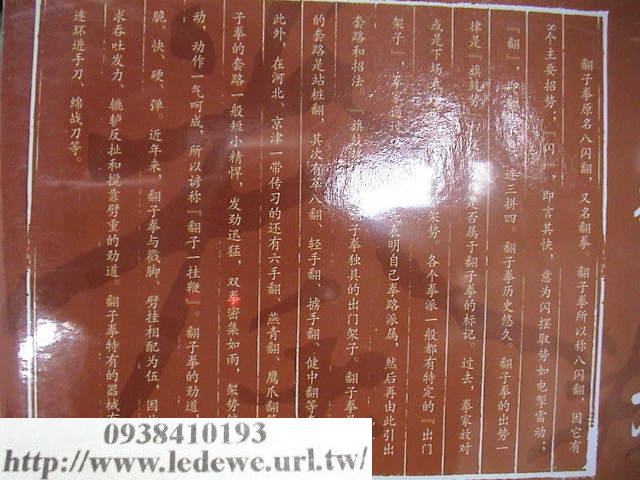 翻子拳原名八闪翻，又名翻拳。翻子拳所以称八闪翻，因它有
8个主要招势；『闪』，即言其快，意为闪摆取势如电掣雷动；
『翻』，即翻 连三拼四。翻子拳历史悠久。翻子拳的出势一
律是『旗鼓势』 是否属于翻子拳的标记。过去，拳家放对
或是下场表 架势。各个拳派一般都有特定的『出门
架子』，拳家通 先表明自己拳路派属，然后再由此引出
套路和招法。『旗鼓势 子拳独具的出门架子。翻子拳
的套路是站桩翻，其次有萃八翻、轻手翻、掳手翻、健中翻等
此外，在河北、京津一带传习的还有六手翻、燕青翻、鹰爪翻
子拳的套路一般短小精悍，发劲迅猛，双拳密集如雨，架势
动，动作一气呵成，所以谚称『翻子一挂鞭』。翻子拳的劲道，
脆、快、硬、弹。近年来，翻子拳与戳脚、劈挂相配为伍，因
求吞吐发力、辘轳反扯和搅靠劈重的劲道。翻子拳特有的器械
连环进手刀、绵战刀等。
0938410193
http://www.ledewe.url.tw/